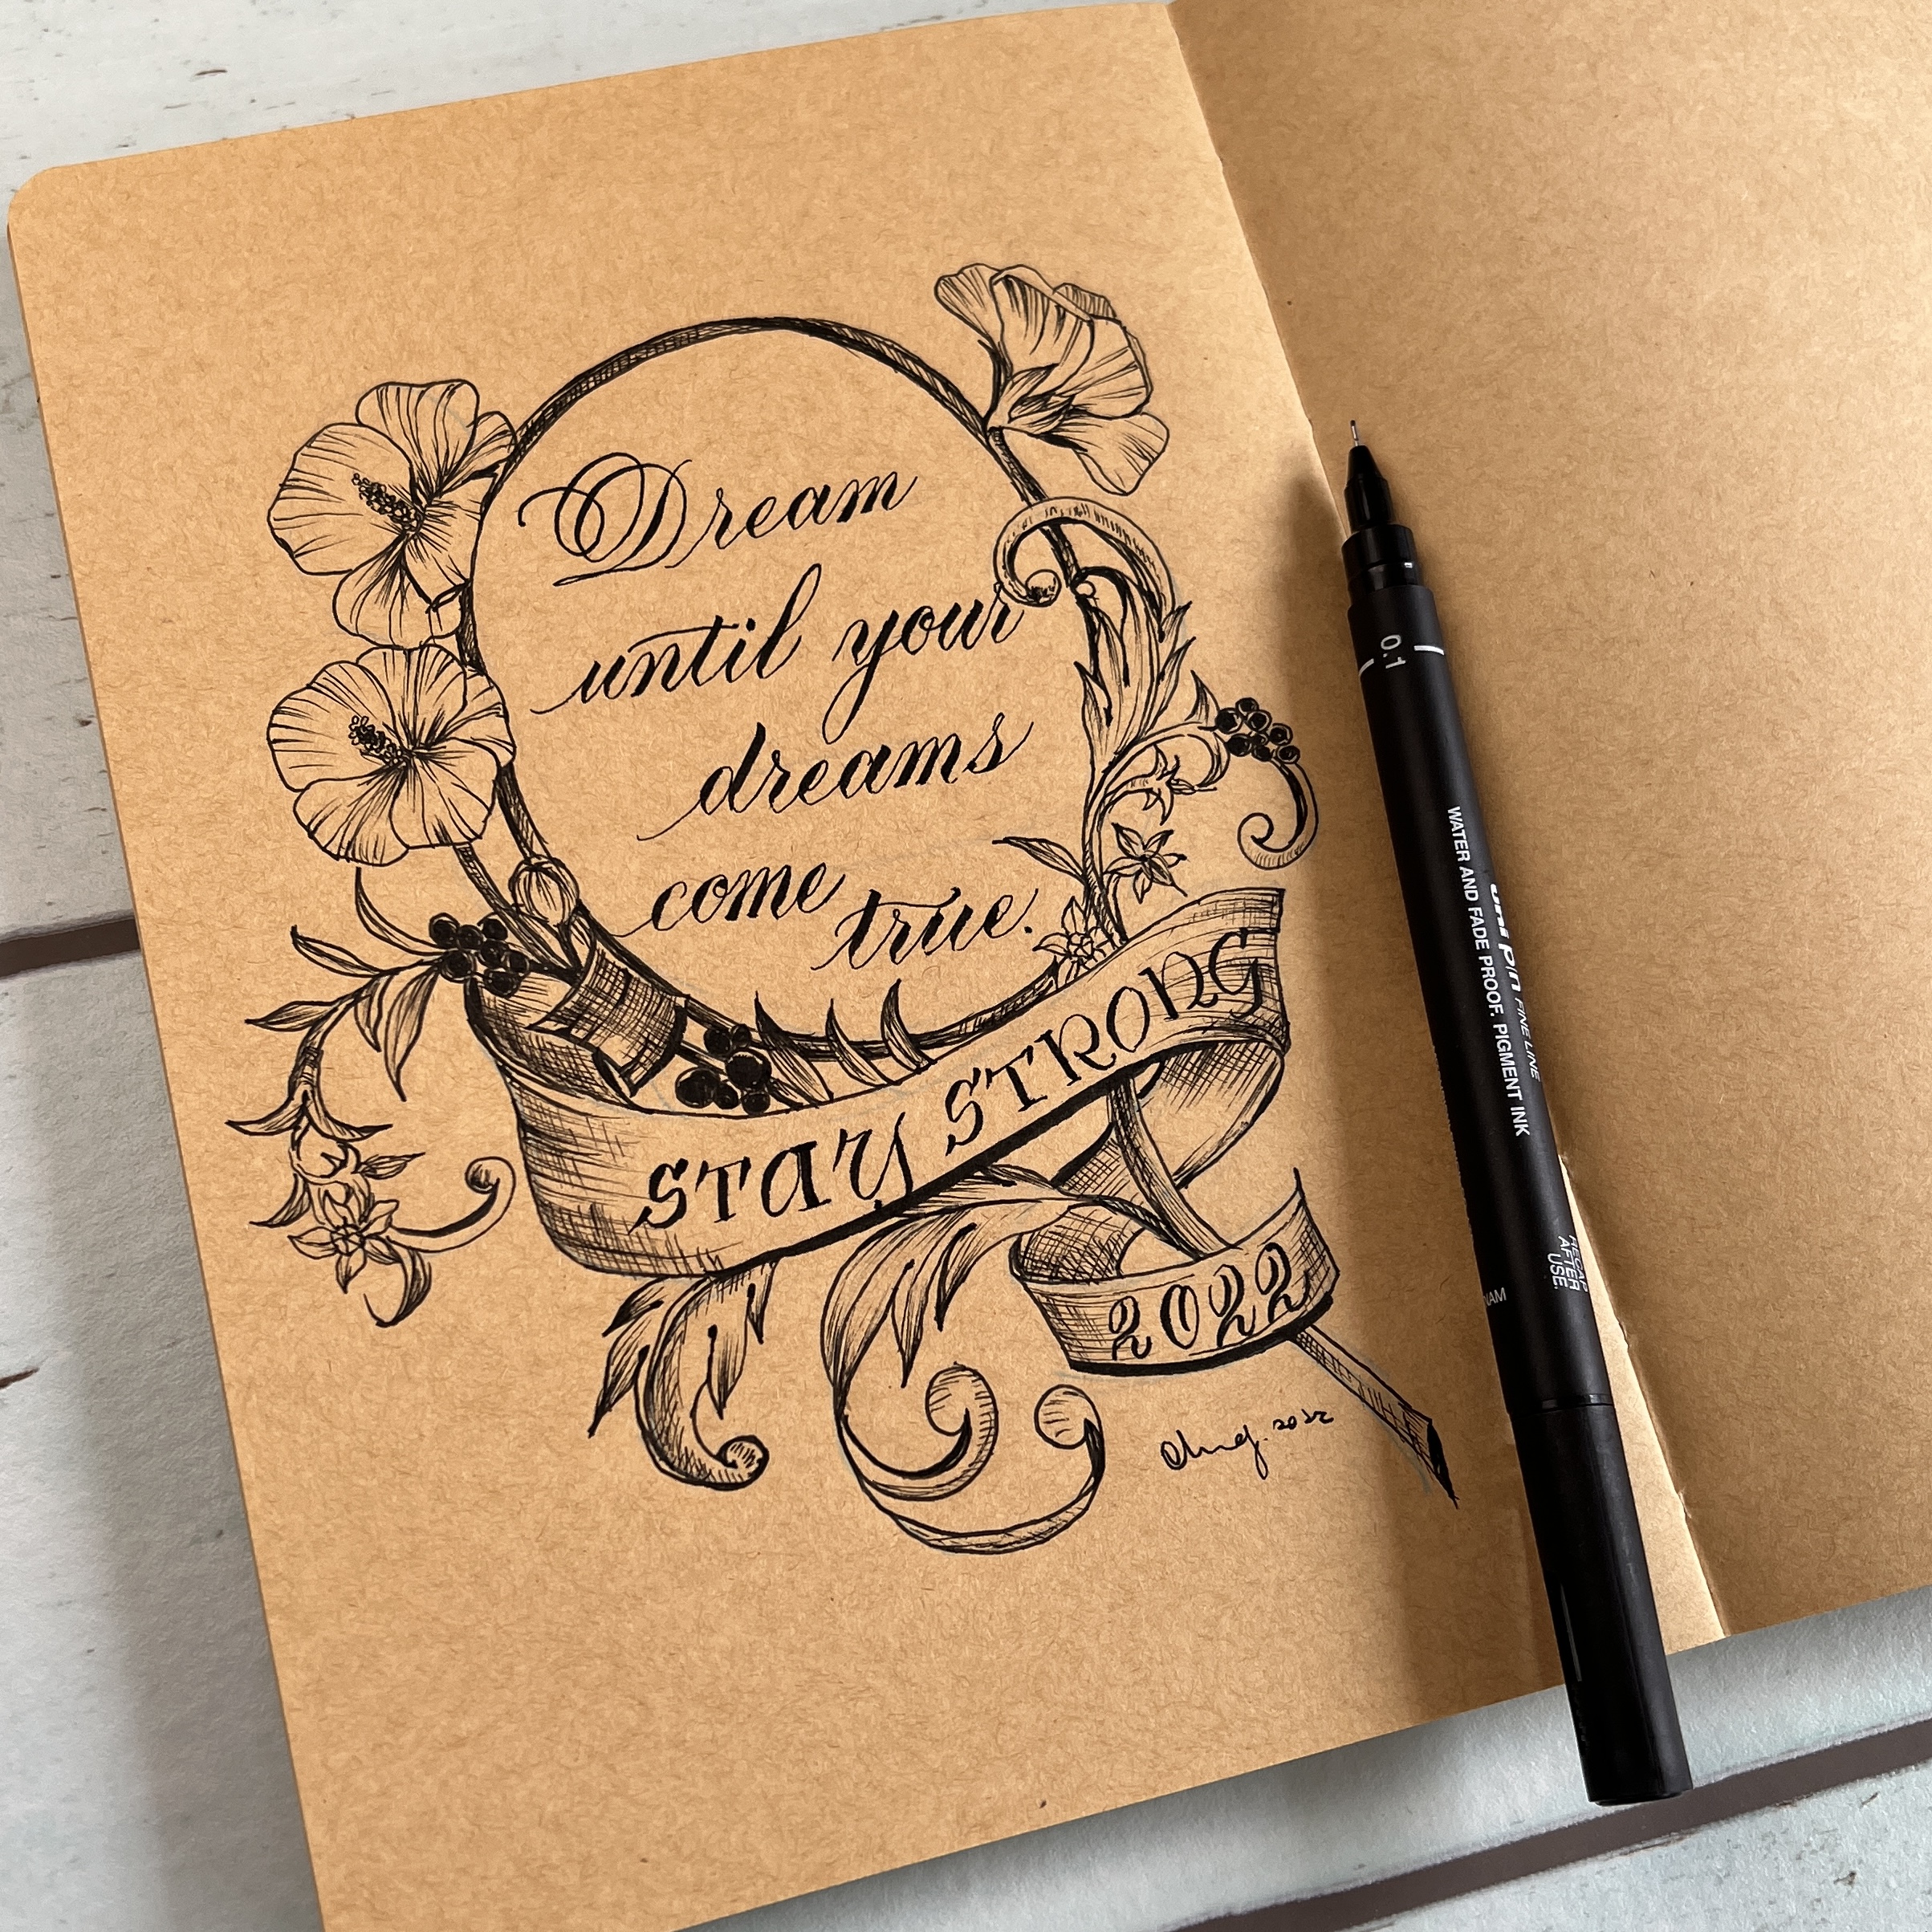 Dream
until your
dreams
come
true.
STAY STRONG
2022
2022
0.1
uni pin FINE LINE
WATER AND FADE PROOF, PIGMENT INK
RECAP
AFTER
USE.